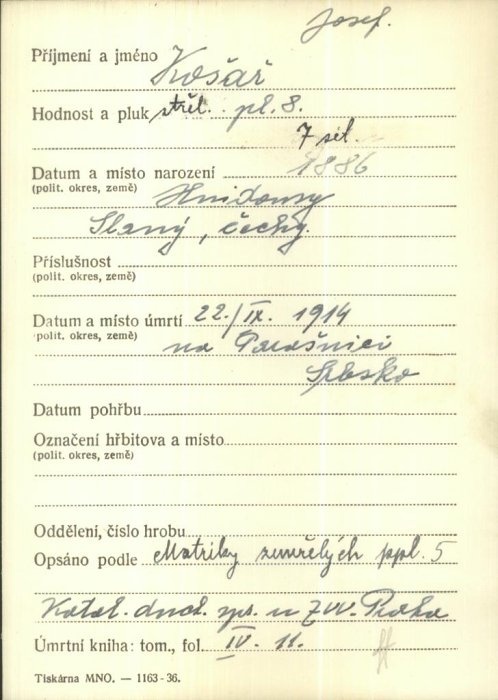 Josef.
Příjmení a jméno Košař
Hodnost a pluk střel. pl. 8.
7 set.
Datum a místo narození 1886
(polit. okres, země) Hnidousy
Slaný, Čechy.
Příslušnost
(polit. okres, země)
Datum a místo úmrtí 22./IX. 1914
(polit. okres, země) na Parašnici
Srbsko
Datum pohřbu
Označení hřbitova a místo
(polit. okres, země)
Oddělení, číslo hrobu
Opsáno podle Matriky zemřelých ppl. 5
Katol. duch. spr. u ZVV. Praha
Úmrtní kniha: tom., fol. IV. 11.
Tiskárna MNO. — 1163-36.